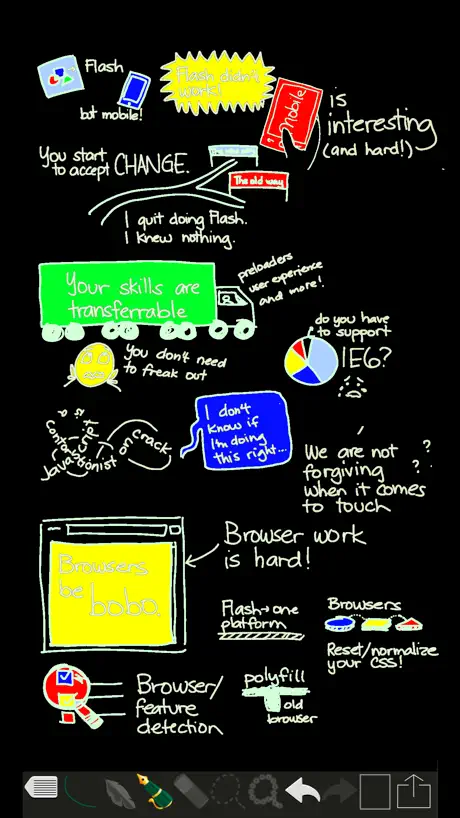 Flash
but mobile!
Flash didn't
work!
Mobile
is
interesting
(and hard!)
You start
to accept CHANGE.
The old way
I quit doing Flash.
I knew nothing.
Your skills are
transferrable
preloaders
user experience
and more!
you don't need
to freak out
do you have
to support
IE6?
Javascript is a
contortionist on crack
I don't
know if
I'm doing
this right...
We are not
forgiving
when it comes
to touch
? ? ?
Browsers
be bobo.
Browser work
is hard!
Flash→one
platform
Browsers
Reset/normalize
your CSS!
Browser/
feature
detection
polyfill
old
browser